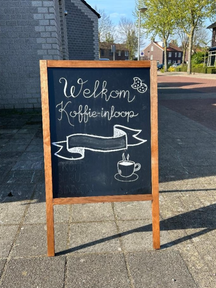 Welkom
Koffie-inloop